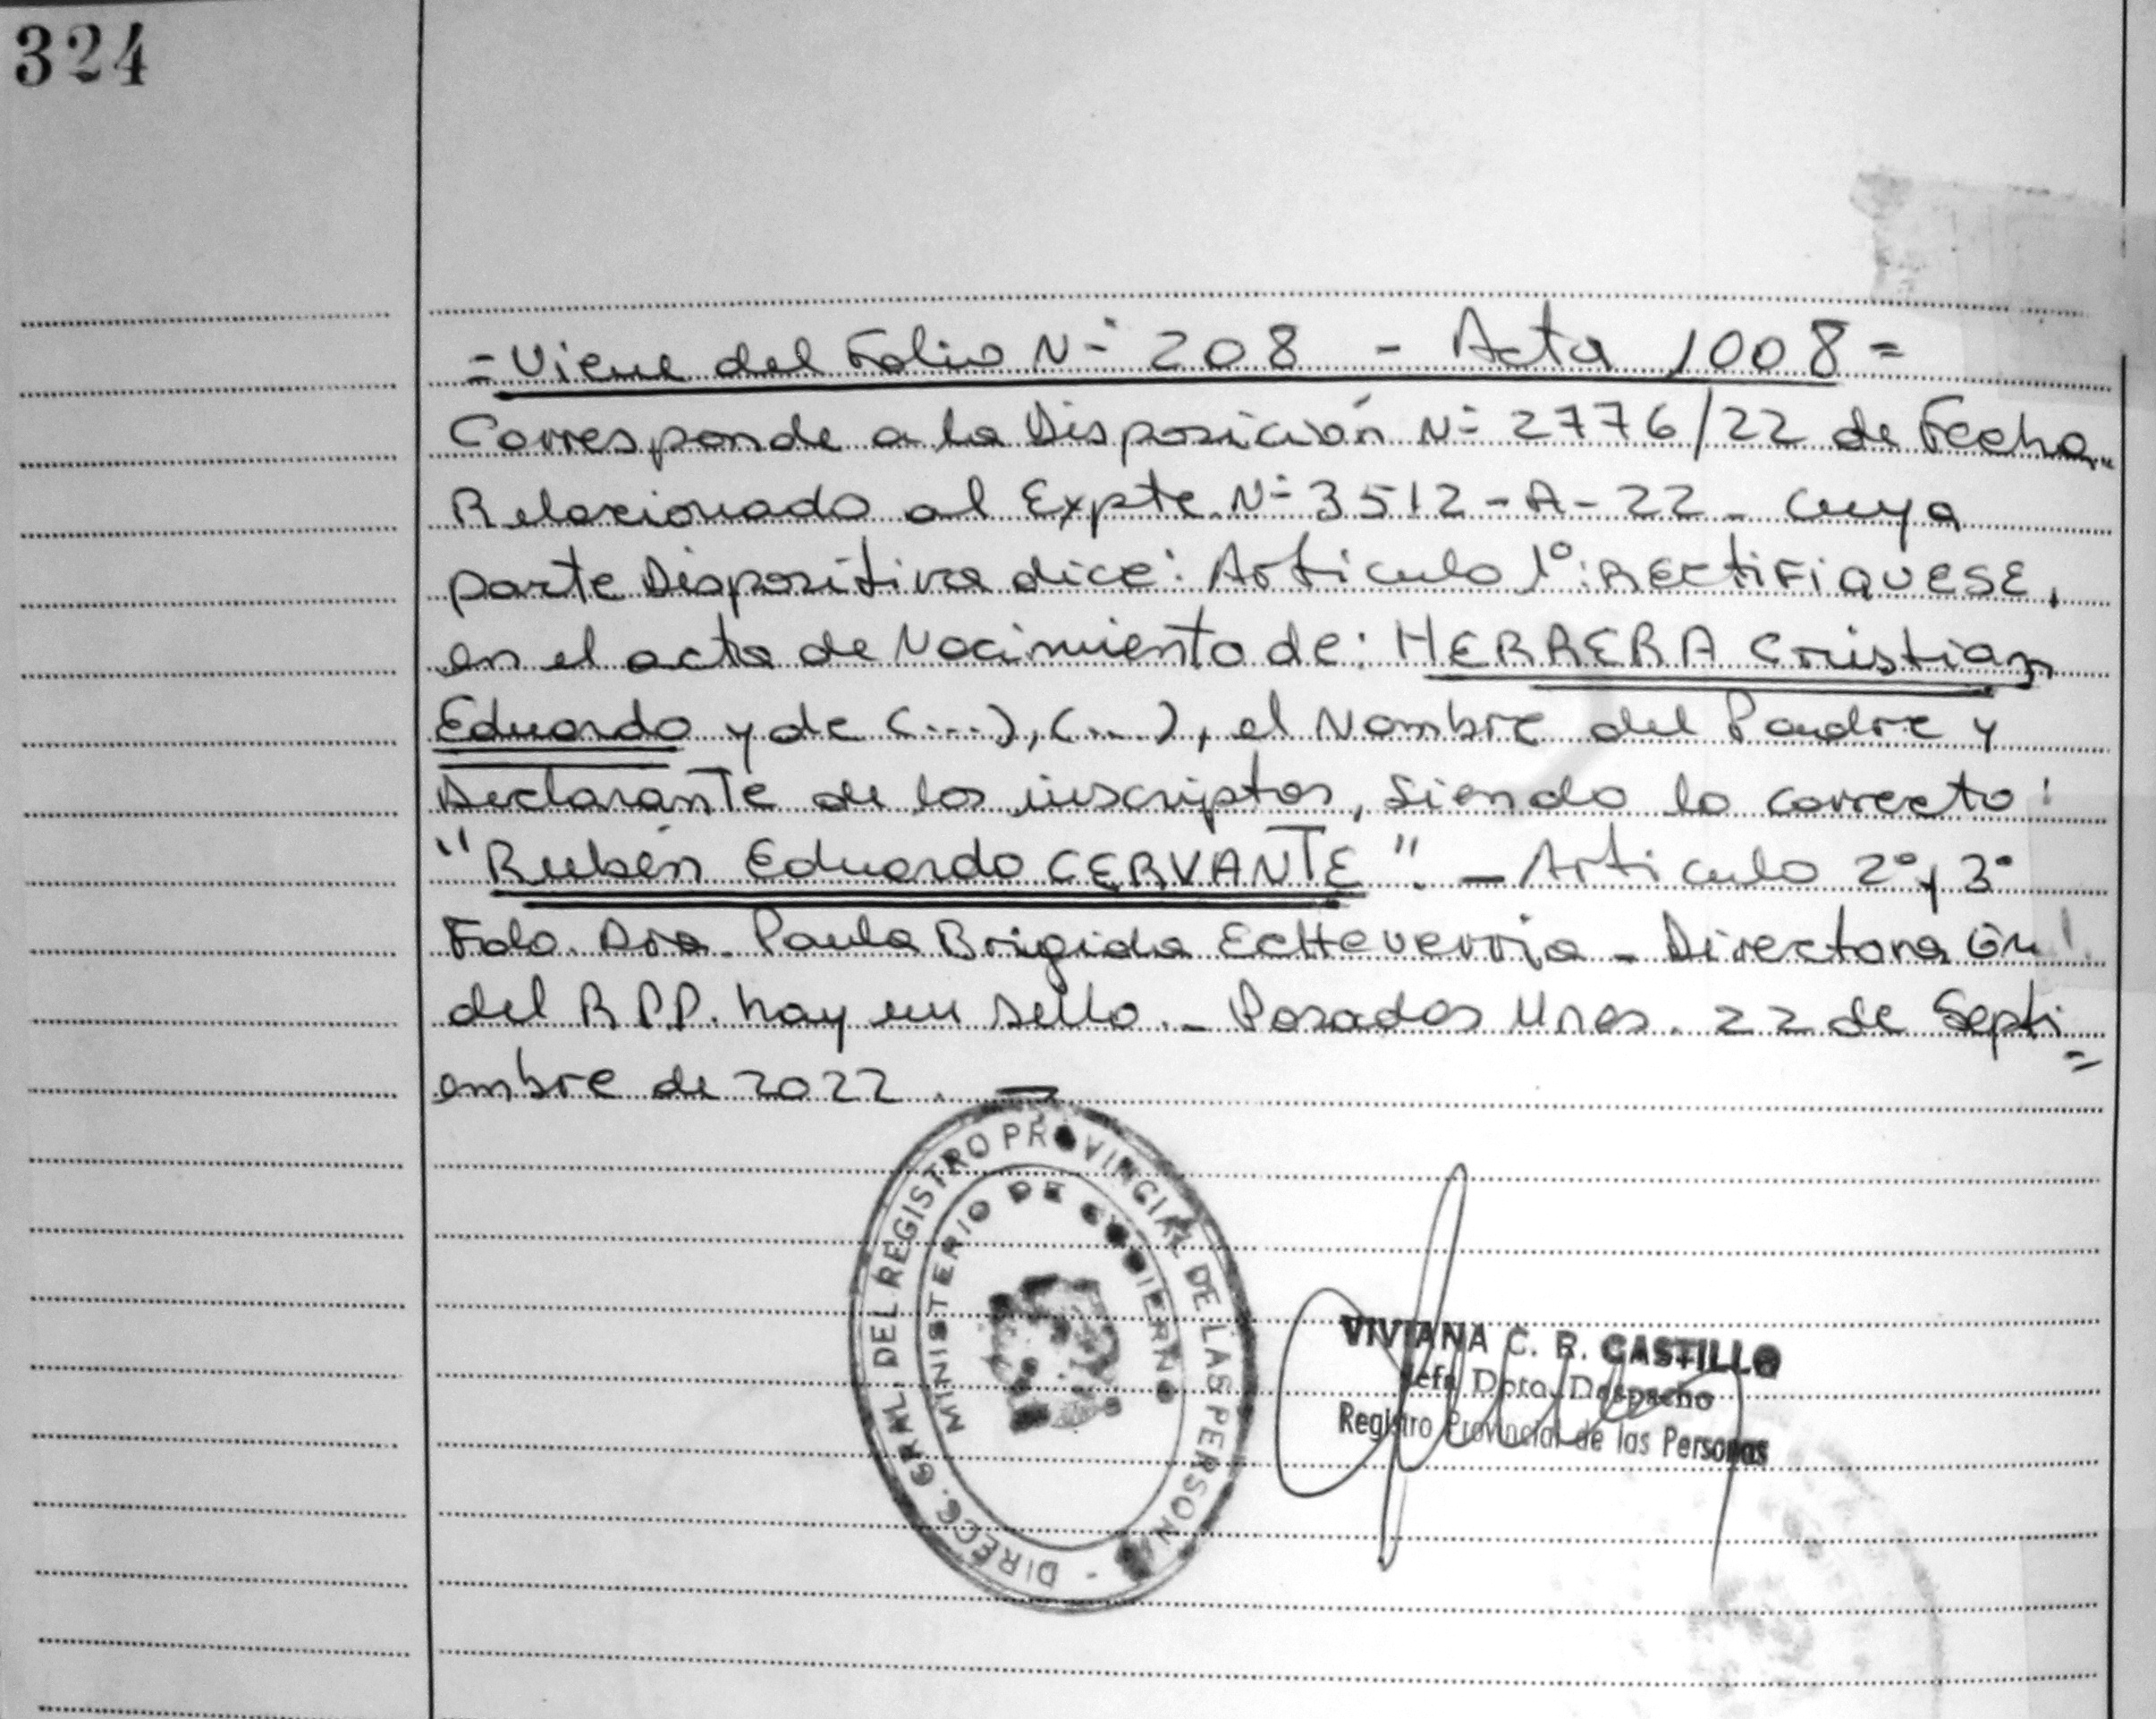 324
= Viene del Folio N° 208 - Acta 1008 =
Corresponde a la Disposición N° 2776/22 de Fecha
Relacionado al Expte N° 3512-A-22- cuya
parte Dispositiva dice: Articulo 1°: RECTIFIQUESE,
en el acta de Nacimiento de: HERRERA Cristian
Eduardo y de (...), (...), el Nombre del Padre y
Declarante de los inscriptos, siendo lo correcto:
"Rubén Eduardo CERVANTE". - Articulo 2° y 3°
Fdo. Dra. Paula Brigida Echeverria - Directora Gral
del R.P.P. hay un sello. - Posadas Mnes. 22 de Septi=
embre de 2022. -
DIRECC. GRAL. DEL REGISTRO PROVINCIAL DE LAS PERSONAS -
MINISTERIO DE GOBIERNO
VIVIANA C. R. CASTILLO
Jefa Dpto. Despacho
Registro Provincial de las Personas